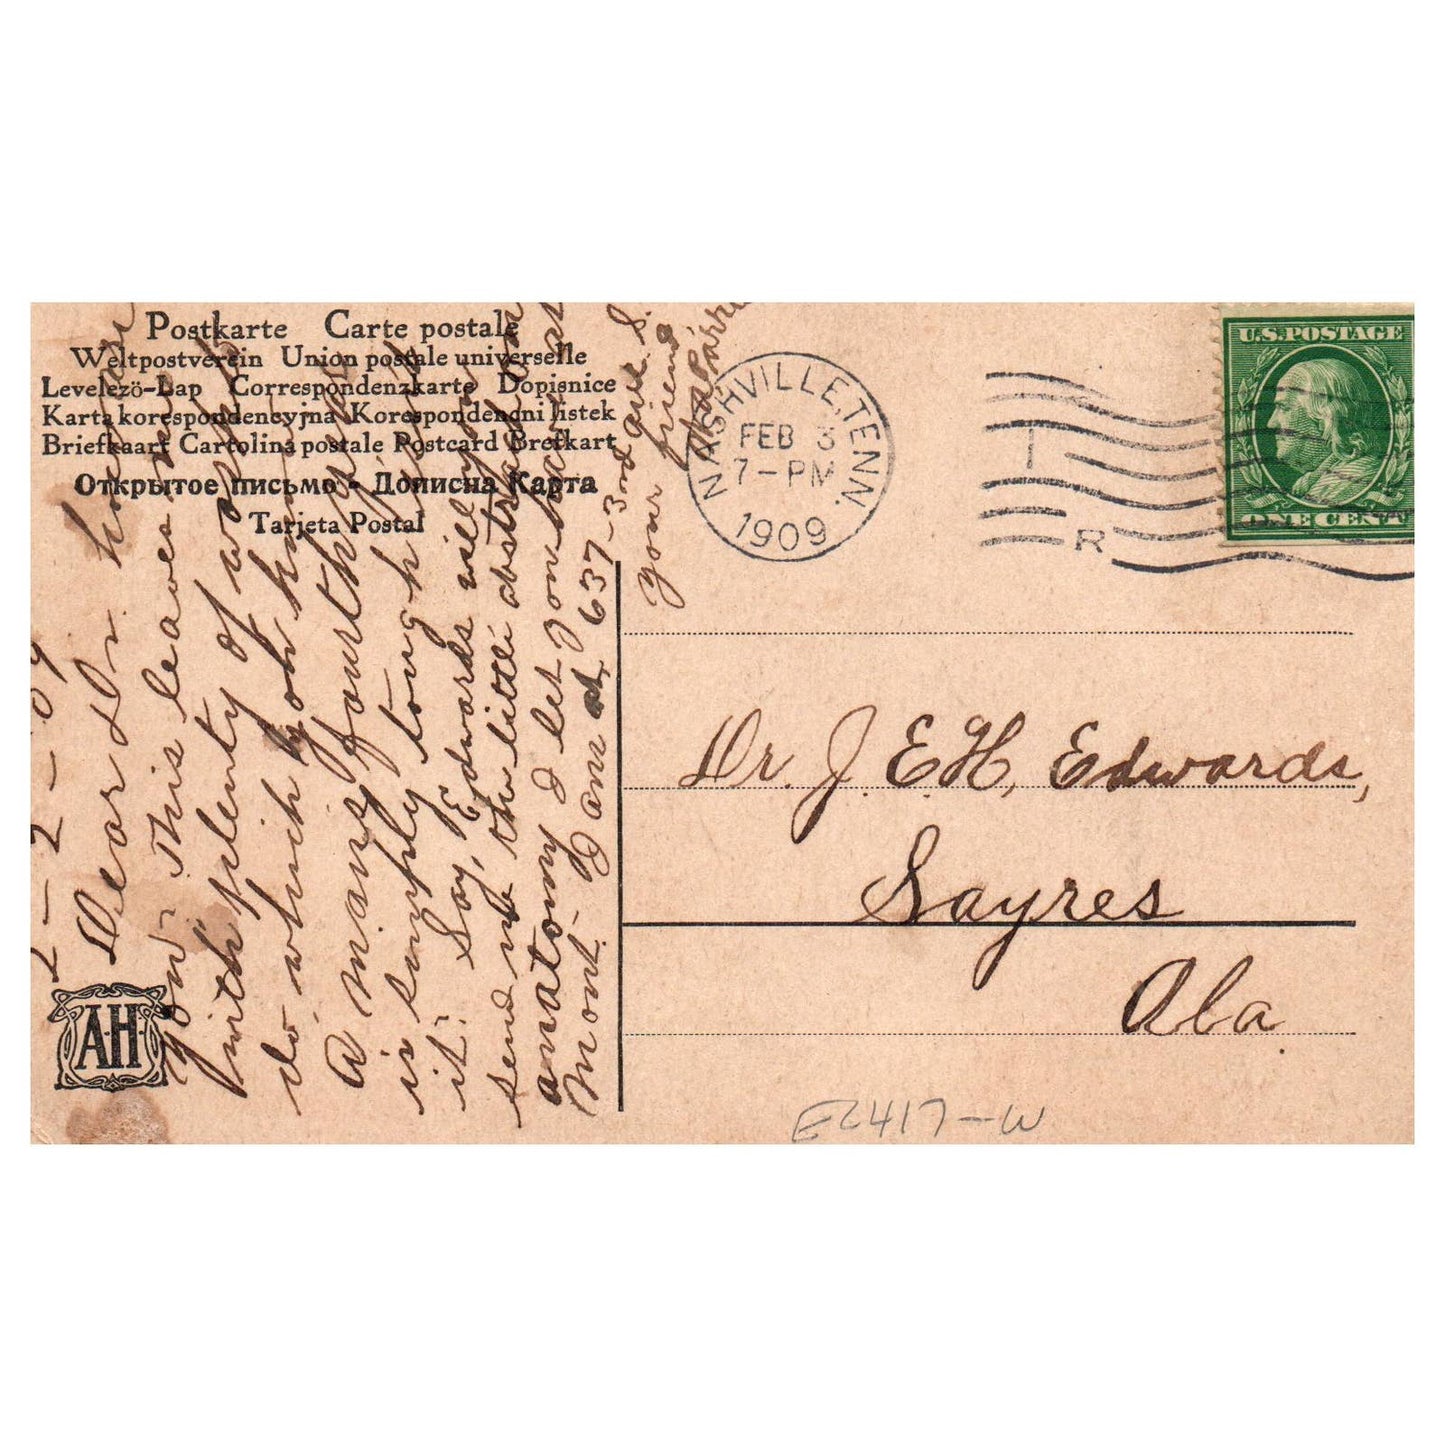 Postkarte Carte postale
Weltpostverein Union postale universelle
Levelezö-Lap Correspondenzkarte Dopisnice
Karta korespondencyjna Korespondencni listek
Briefkaart Cartolina postale Postcard Brefkart
Открытое письмо - Дописна Карта
Tarjeta Postal
A·H
2-2-09
Dear Dr.
This leaves
with plenty of work
do which you know
a mans fourth year
is simply tough
it. Say, Edwards will you
send me the little abstract on
anatomy I let you have at
Mont. I am at 637-3rd ave S.
Your friend
NASHVILLE, TENN.
FEB 3
7-PM
1909
1
R
U.S. POSTAGE
ONE CENT
Dr. J. E. H. Edwards,
Sayres
Ala.
E2417-W